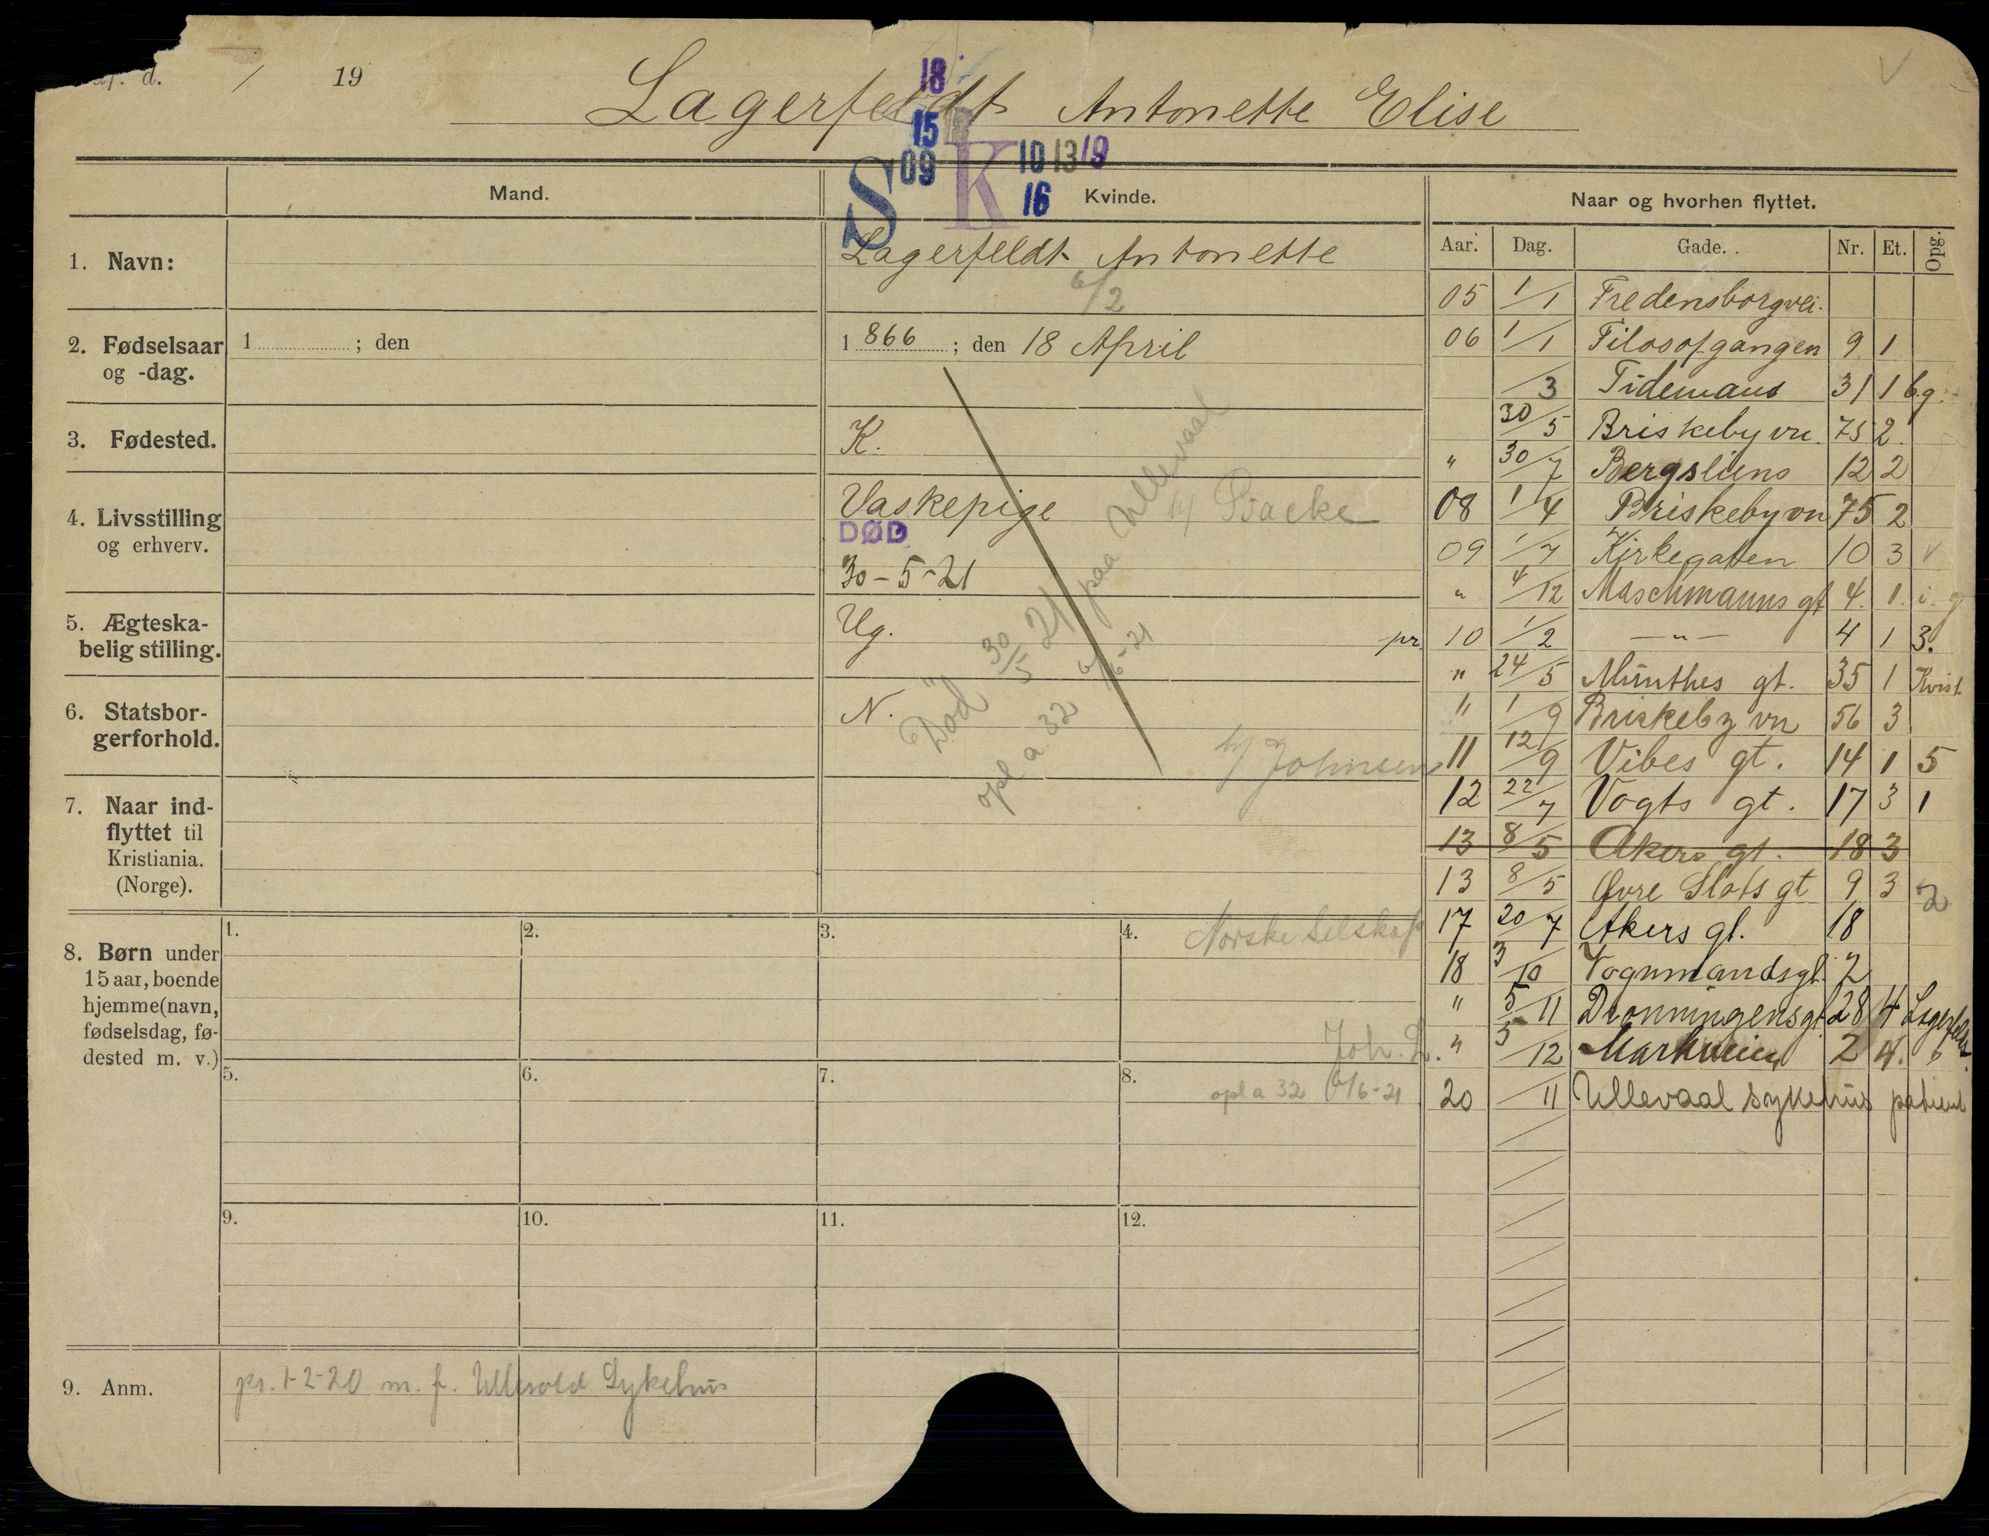 d. / 19
Lagerfeldt Antonette Elise
18
15
S 09 K 10 13 19
16
Mand.
Kvinde.
Naar og hvorhen flyttet.
Aar. Dag. Gade. Nr. Et. Opg.
1. Navn:
Lagerfeldt Antonette
6/2
2. Fødselsaar
og -dag.
1 ; den
1866 ; den 18 April
3. Fødested.
K.
4. Livsstilling
og erhverv.
Vaskepige
h/ Backe
DØD
30-5-21
5. Ægteska-
belig stilling.
Ug.
pr.
6. Statsbor-
gerforhold.
N.
Død 30/5 21 paa Ullevaal
opl a 32 6/6-21
h/ Johnsen
7. Naar ind-
flyttet til
Kristiania.
(Norge).
8. Børn under
15 aar, boende
hjemme (navn,
fødselsdag, fø-
dested m. v.)
1. 2. 3. 4.
Norske Selskap
Joh. L.
5. 6. 7. 8.
opl a 32 6/6-21
9. 10. 11. 12.
9. Anm.
pr. 1-2-20 m. f. Ullevold Sykehus
05 1/1 Fredensborgvei.
06 1/1 Filosofgangen 9 1
/3 Tidemans 31 1 b.g.
30/5 Briskebyvn. 75 2.
" 30/7 Bergsliens 12 2
08 1/4 Briskebyvn 75 2
09 1/7 Kirkegaten 10 3 v
" 4/12 Maschmanns gt 4. 1. i. g
10 1/2 — " — 4 1 3.
" 24/5 Münthes gt. 35 1 Kvist
" 1/9 Briskeby vn 56 3
11 12/9 Vibes gt. 14 1 5
12 22/7 Vogts gt. 17 3 1
13 8/5 Akers gt. 18 3
13 8/5 Øvre Slots gt 9 3 2
17 20/7 Akers gt. 18
18 3/10 Vognmandsgt. 7
" 5/11 Dronningensgt 28 4 Lagerfeldt
" 5/12 Markveien 2 4. b
20 /11 Ullevaal sykehus patient